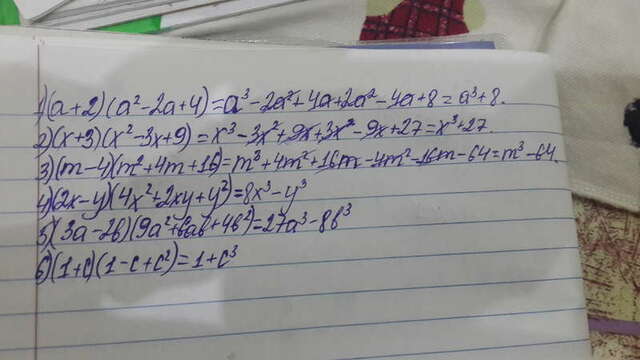 1)(a+2)(a²-2a+4)=a³-2a²+4a+2a²-4a+8=a³+8.
2)(x+3)(x²-3x+9)=x³-3x²+9x+3x²-9x+27=x³+27.
3)(m-4)(m²+4m+16)=m³+4m²+16m-4m²-16m-64=m³-64
4)(2x-y)(4x²+2xy+y²)=8x³-y³
5)(3a-2b)(9a²+6ab+4b²)=27a³-8b³
6)(1+c)(1-c+c²)=1+c³